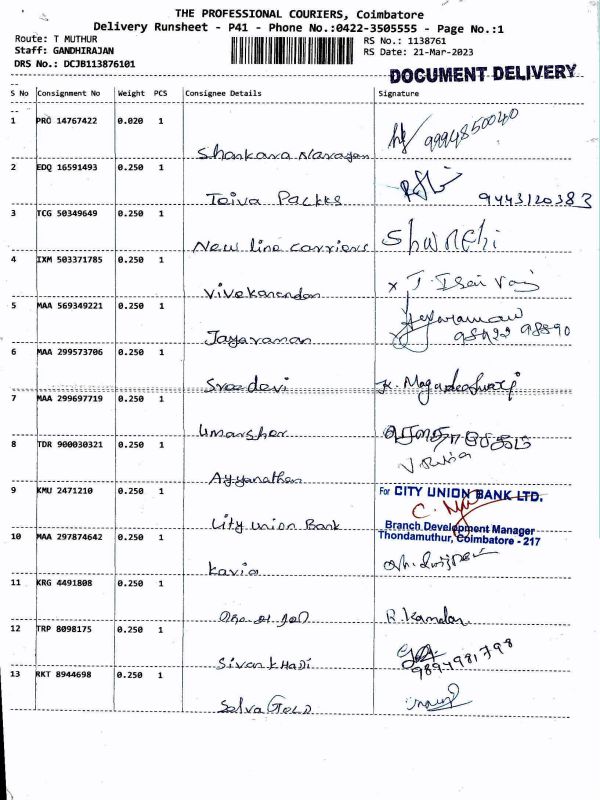 THE PROFESSIONAL COURIERS, Coimbatore
Delivery Runsheet - P41 - Phone No.:0422-3505555 - Page No.:1
Route: T MUTHUR
RS No.: 1138761
Staff: GANDHIRAJAN
RS Date: 21-Mar-2023
DRS No.: DCJB113876101
DOCUMENT DELIVERY
S No Consignment No Weight PCS Consignee Details Signature
1 PRO 14767422 0.020 1
9994850040
Shankara Narayan
2 EDQ 16591493 0.250 1
9443120383
Teiva Packks
3 TCG 50349649 0.250 1
New line carriers
4 IXM 503371785 0.250 1
Vivekanandan
5 MAA 569349221 0.250 1
Jayaraman
Jayaraman
98422 98890
6 MAA 299573706 0.250 1
Sreedevi K. Magadeshwari
7 MAA 299697719 0.250 1
Umarsher
8 TDR 900030321 0.250 1
Ayyanathan
9 KMU 2471210 0.250 1
For CITY UNION BANK LTD.
City union Bank
Branch Development Manager
Thondamuthur, Coimbatore - 217
10 MAA 297874642 0.250 1
Kavia
11 KRG 4491808 0.250 1
R. Kannan
12 TRP 8098175 0.250 1
9894981798
Sivan KHADI
13 RKT 8944698 0.250 1
Selva Gold